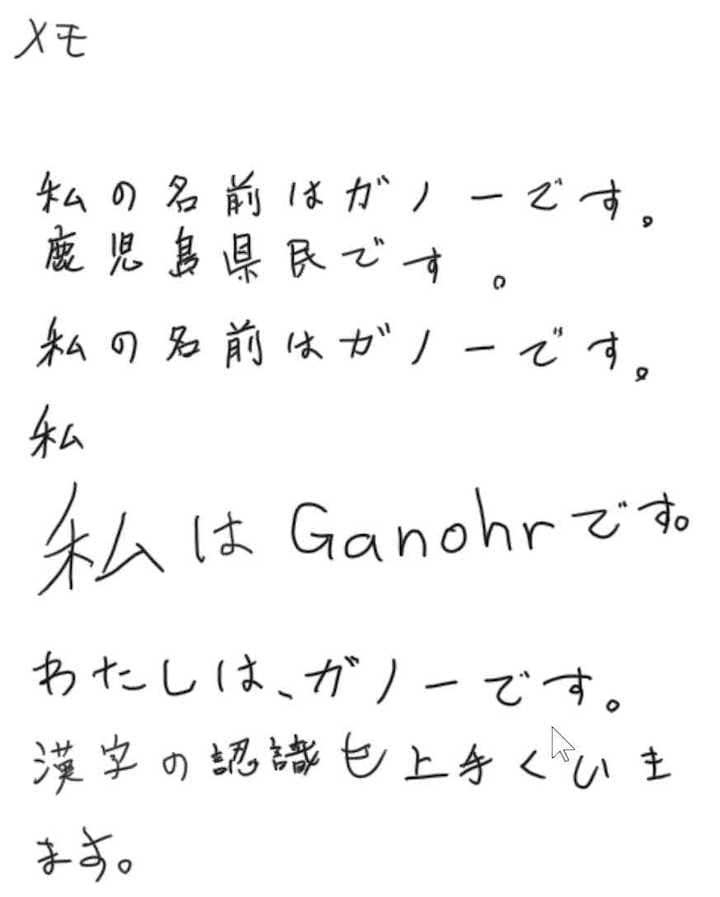 メモ
私の名前はガノーです。
鹿児島県民です。
私の名前はガノーです。
私
私はGanohrです。
わたしは、ガノーです。
漢字の認識も上手くいき
ます。